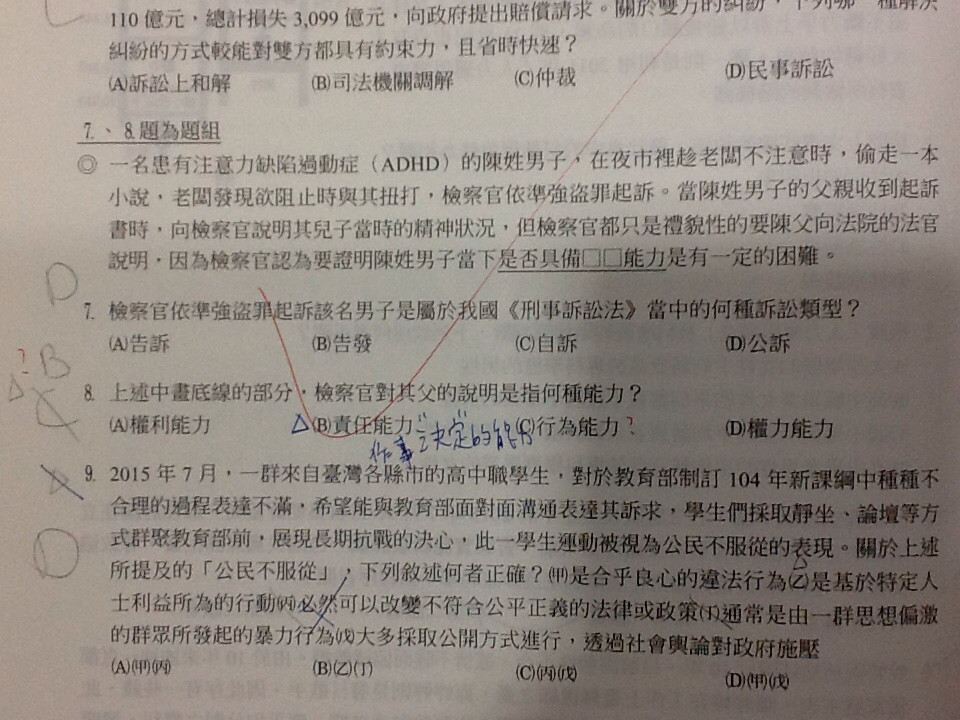 110 億元,總計損失 3,099 億元,向政府提出賠償請求。關於雙方的糾紛,下列哪一種解決
糾紛的方式較能對雙方都具有約束力,且省時快速?
(A)訴訟上和解 (B)司法機關調解 (C)仲裁 (D)民事訴訟
7.、8.題為題組
◎ 一名患有注意力缺陷過動症(ADHD)的陳姓男子,在夜市裡趁老闆不注意時,偷走一本
小說,老闆發現欲阻止時與其扭打,檢察官依準強盜罪起訴。當陳姓男子的父親收到起訴
書時,向檢察官說明其兒子當時的精神狀況,但檢察官都只是禮貌性的要陳父向法院的法官
說明,因為檢察官認為要證明陳姓男子當下是否具備□□能力是有一定的困難。
D
7. 檢察官依準強盜罪起訴該名男子是屬於我國《刑事訴訟法》當中的何種訴訟類型?
(A)告訴 (B)告發 (C)自訴 (D)公訴
? B
△ C
8. 上述中畫底線的部分,檢察官對其父的說明是指何種能力?
(A)權利能力 △(B)責任能力 (C)行為能力? (D)權力能力
作事"決定"的能力
9. 2015 年 7 月,一群來自臺灣各縣市的高中職學生,對於教育部制訂 104 年新課綱中種種不
合理的過程表達不滿,希望能與教育部面對面溝通表達其訴求,學生們採取靜坐、論壇等方
式群聚教育部前,展現長期抗戰的決心,此一學生運動被視為公民不服從的表現。關於上述
D
所提及的「公民不服從」,下列敘述何者正確?(甲)是合乎良心的違法行為(乙)是基於特定人
士利益所為的行動(丙)必然可以改變不符合公平正義的法律或政策(丁)通常是由一群思想偏激
的群眾所發起的暴力行為(戊)大多採取公開方式進行,透過社會輿論對政府施壓
(A)(甲)(丙) (B)(乙)(丁) (C)(丙)(戊) (D)(甲)(戊)